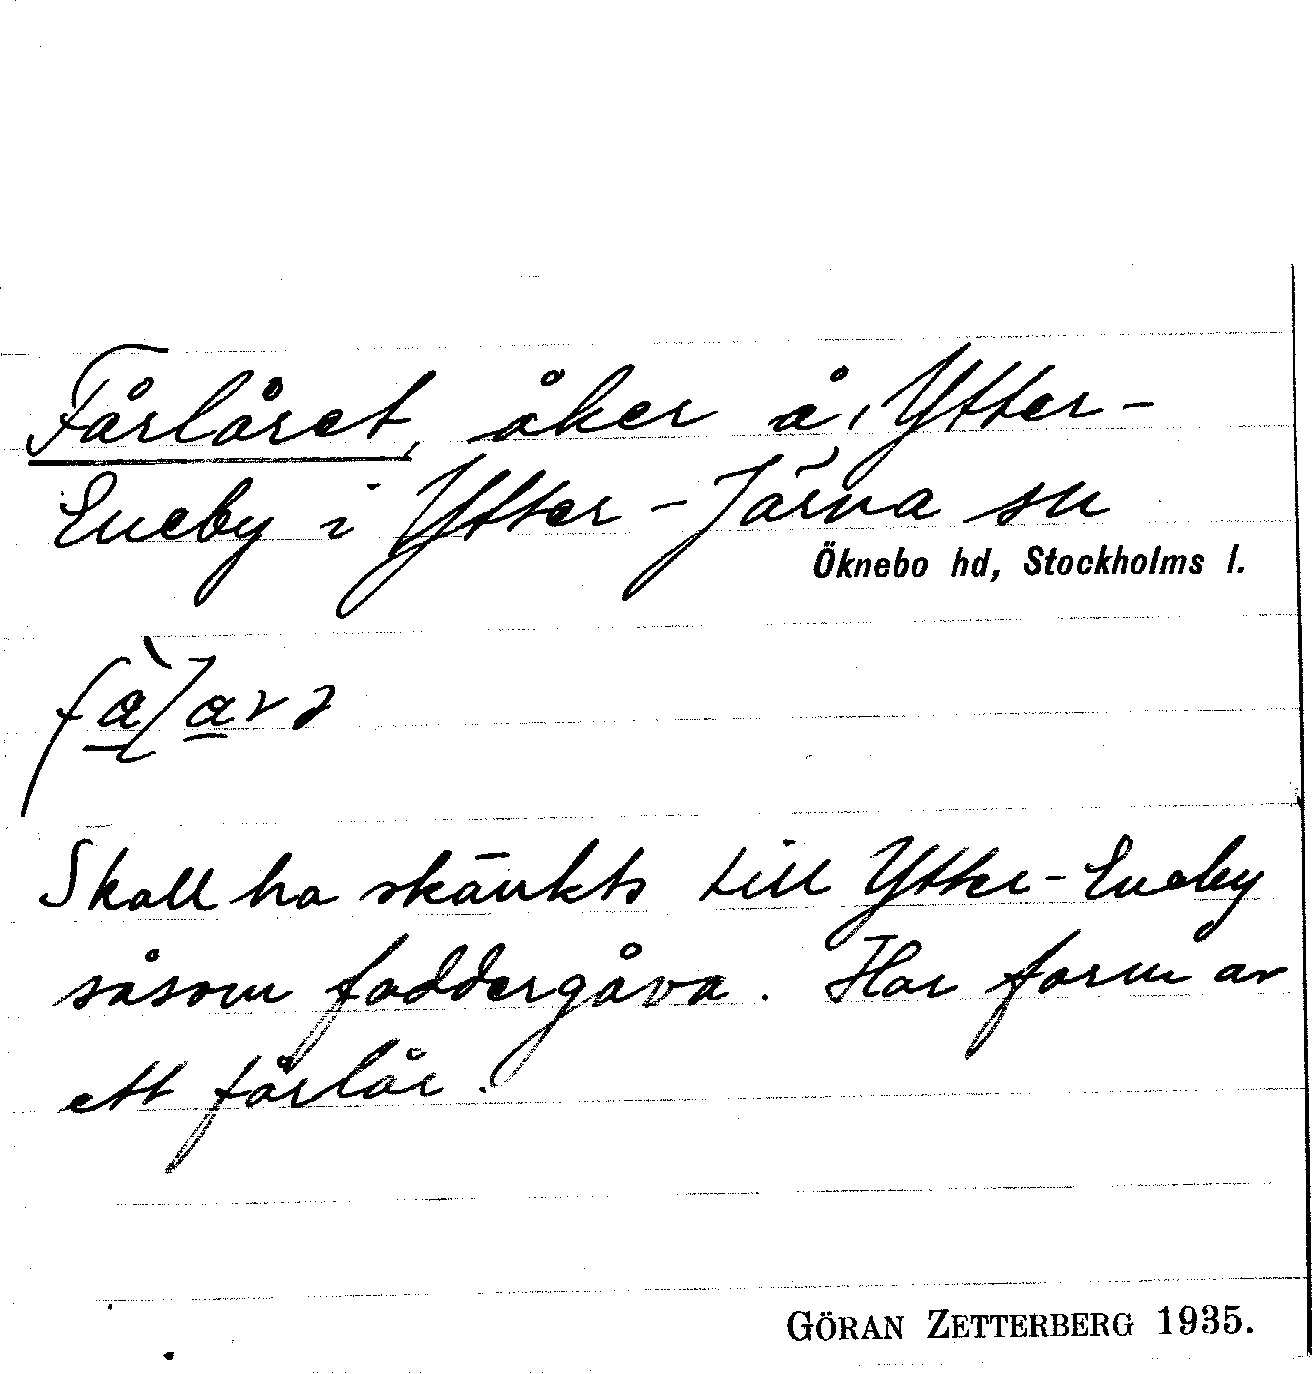 Fårlåret, åker å, Ytter-
Eneby i Ytter-Järna sn
Öknebo hd, Stockholms l.
Skall ha skänkts till Ytter-Eneby
såsom faddergåva. Har form av
ett fårlår.
GÖRAN ZETTERBERG 1935.